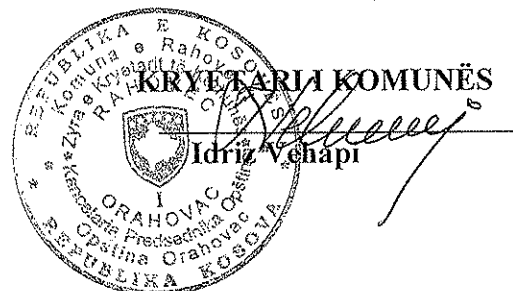 KRYETARI I KOMUNËS
Idriz Vehapi
REPUBLIKA E KOSOVËS
Komuna e Rahovecit
Zyra e Kryetarit të Komunës
RAHOVEC
I
ORAHOVAC
Kancelarija Predsednika Opštine
Opština Orahovac
REPUBLIKA KOSOVA